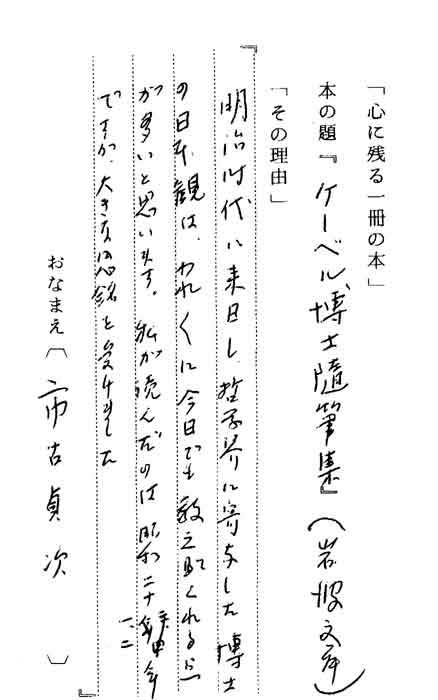 「心に残る一冊の本」
本の題『ケーベル博士隨筆集』(岩波文庫)
「その理由」
『明治時代に来日し、哲学界に寄与した博士
の日本観は、われ〱に今日でも教え
が多いと思います。私が読んだのは昭和二十一、二年
ですが、大きな感銘を受けました
』
おなまえ〔市古貞次〕